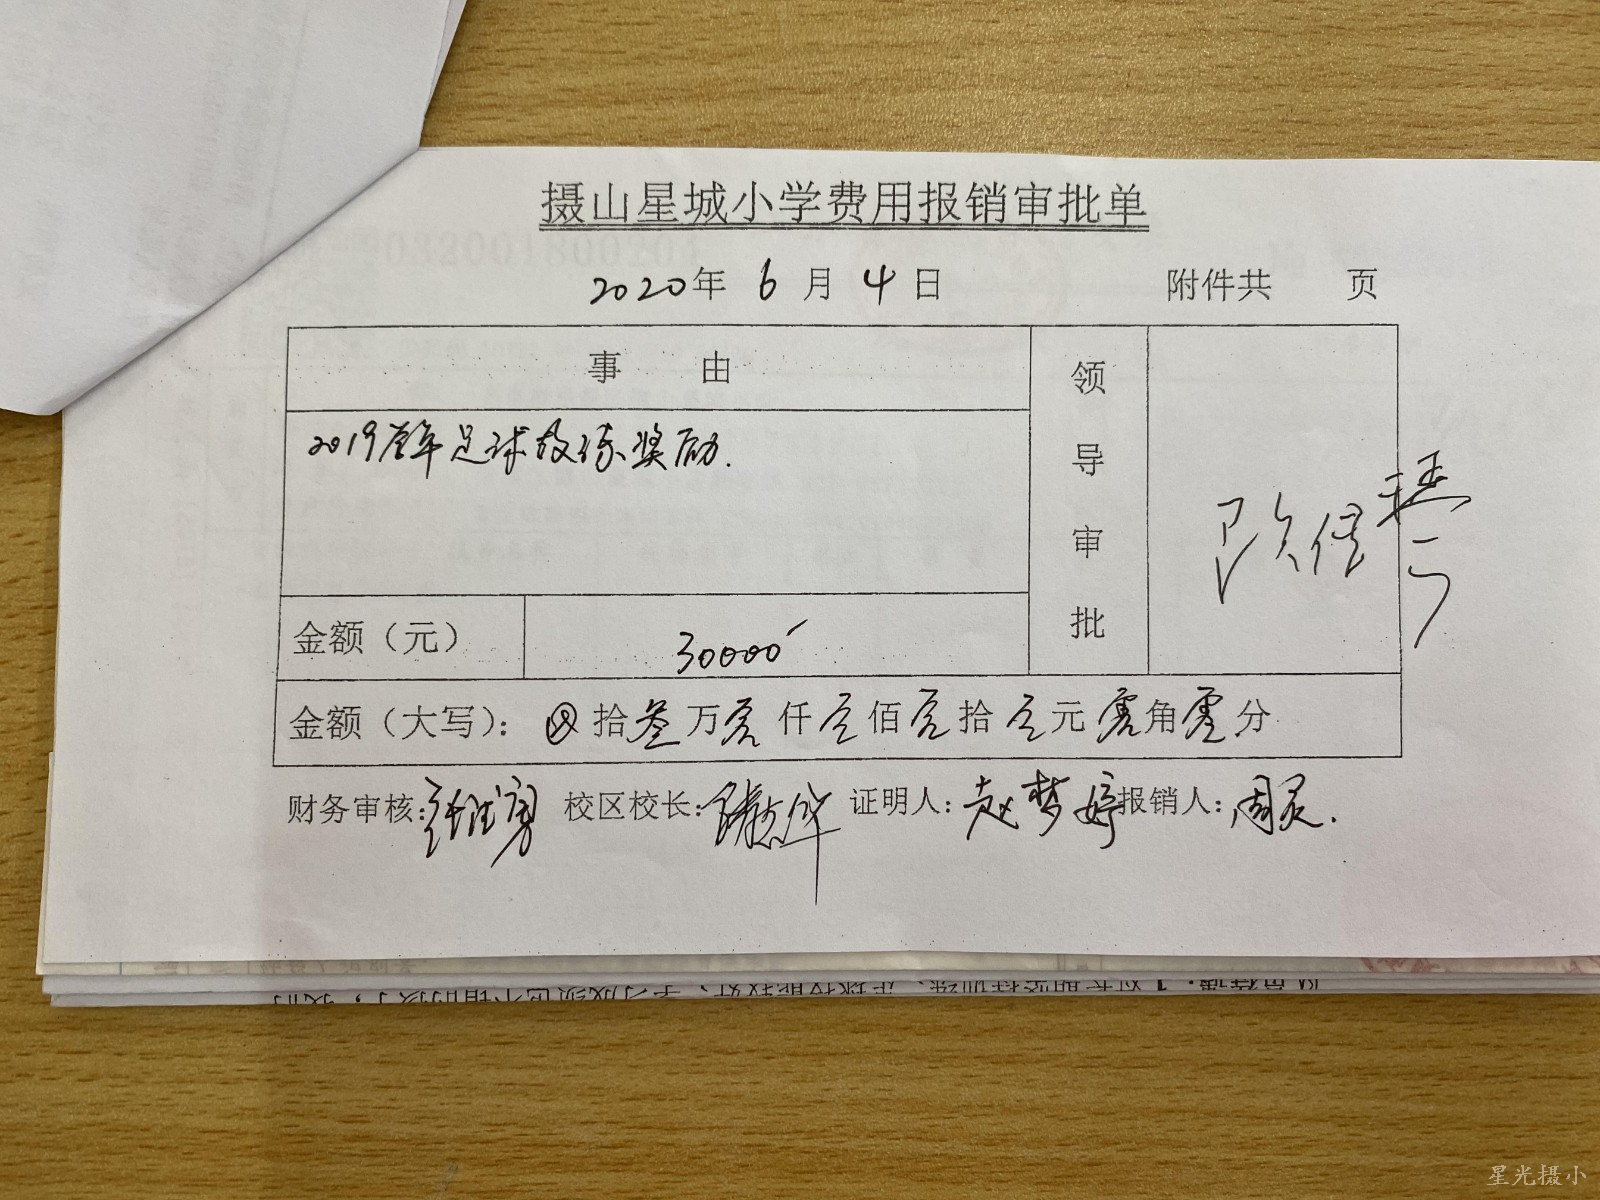 摄山星城小学费用报销审批单
2020年 6 月 4 日 附件共 页
事 由
领导审批
2019学年足球教练奖励.
金额（元）
30000
金额（大写）： ⊗拾叁万零仟零佰零拾零元零角零分
财务审核： 校区校长： 证明人：赵梦婷 报销人：周灵.
星光摄小